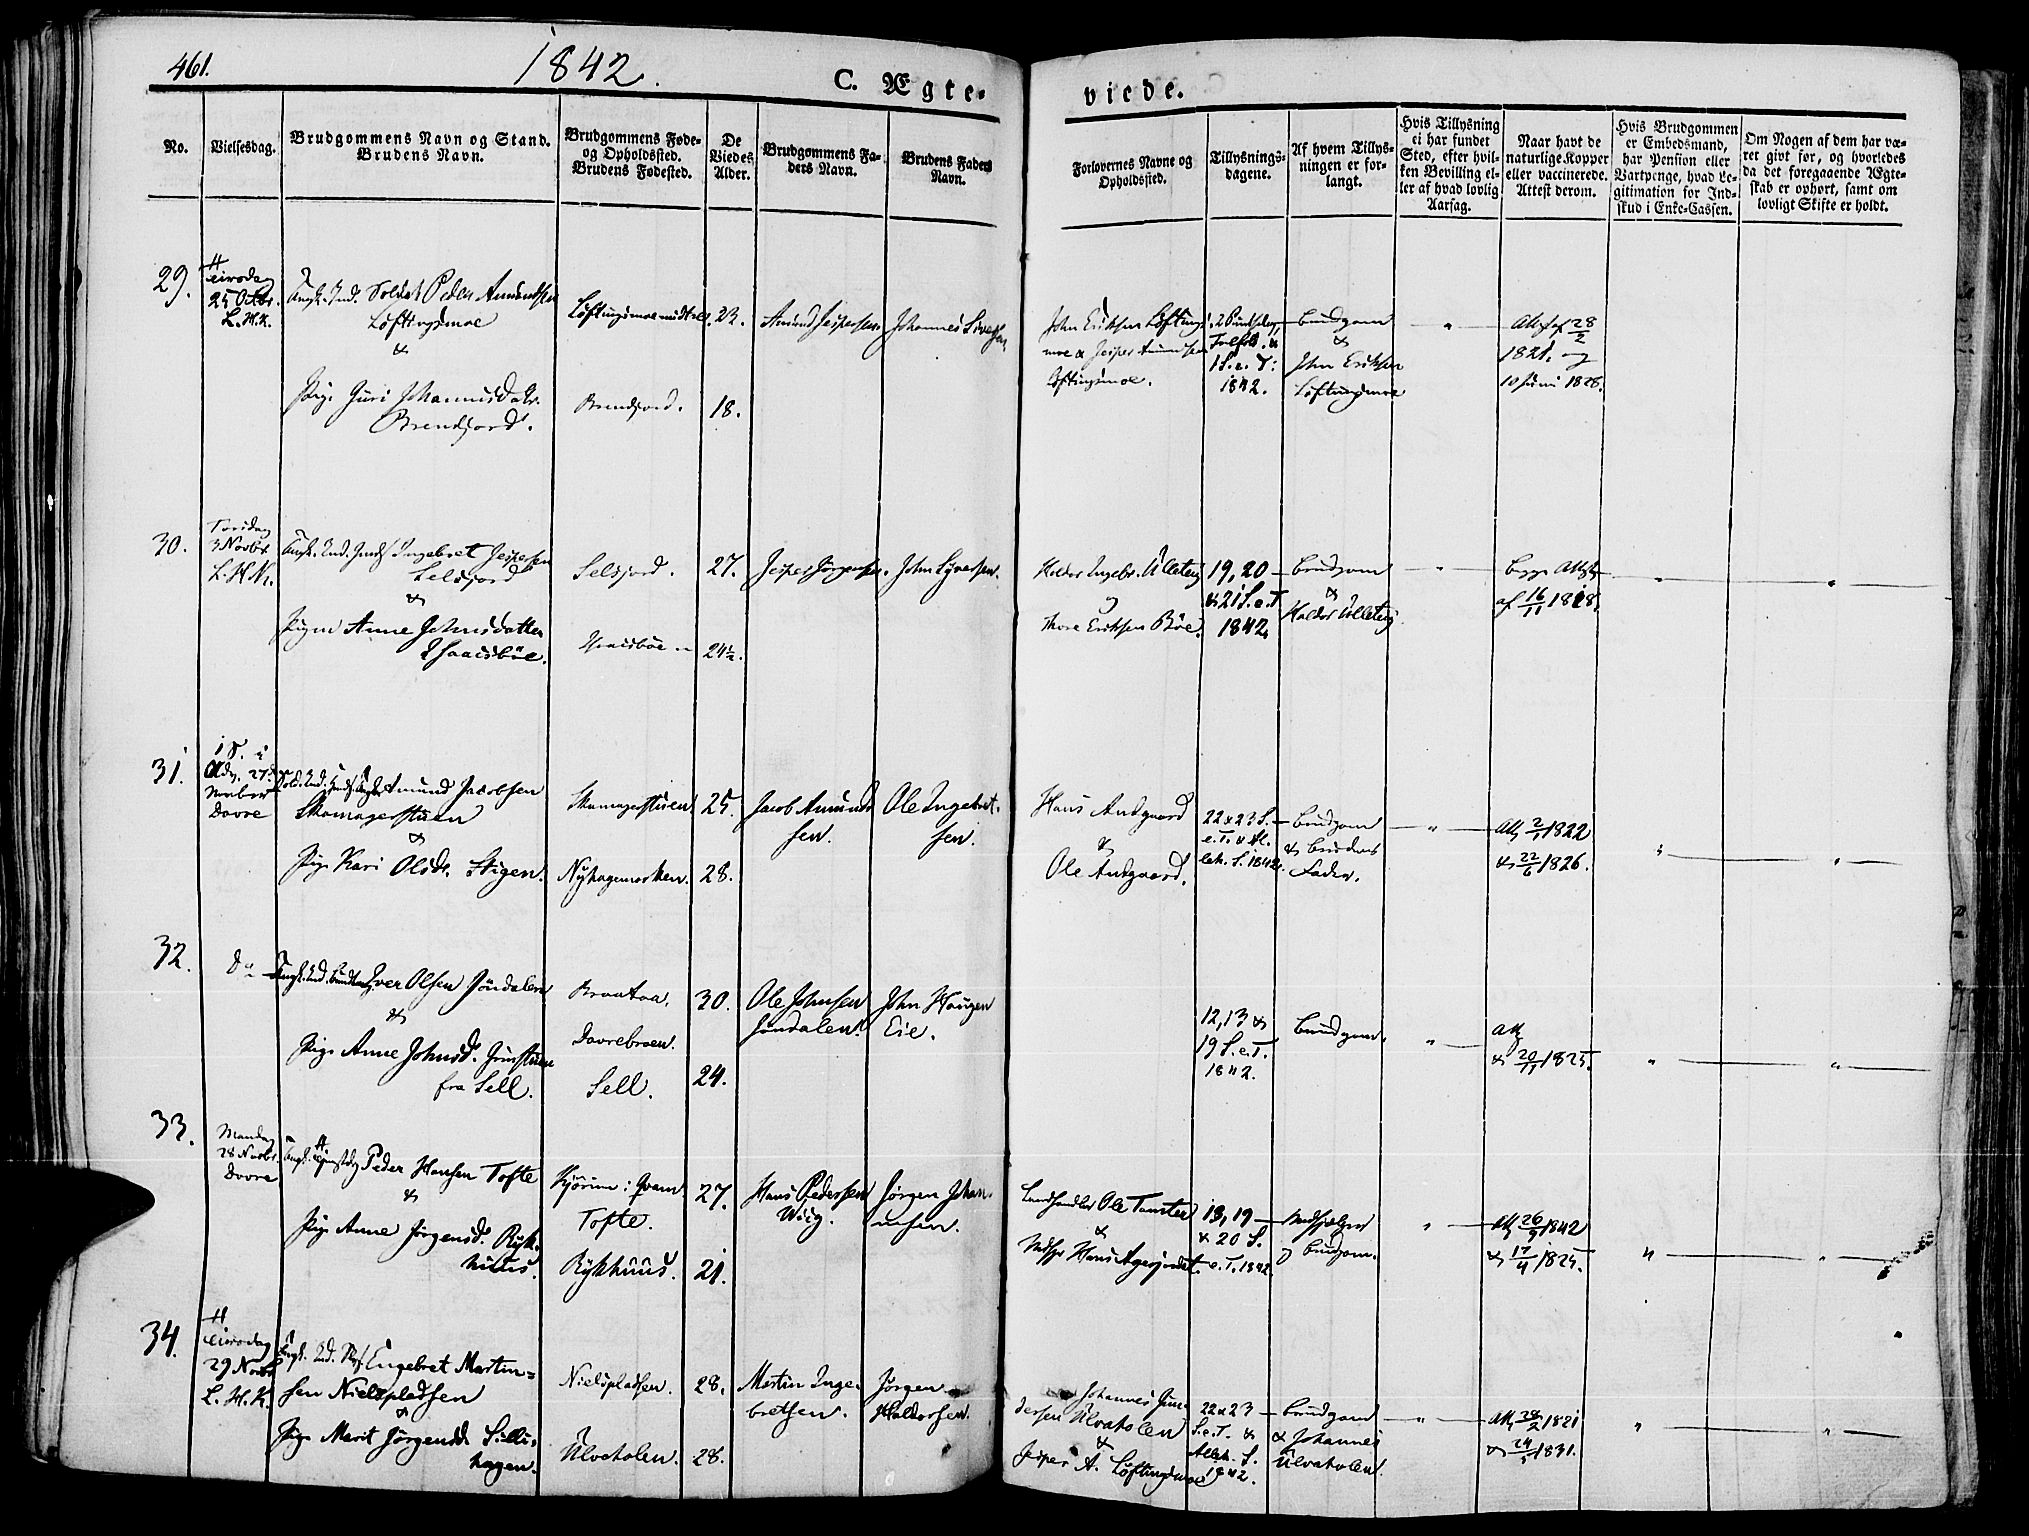 461.
1842.
C. Ægte-
viede.
No.
Vielsesdag.
Brudgommens Navn og Stand.
Brudens Navn.
Brudgommens Føde-
og Opholdssted.
Brudens Fødested.
De
Viedes
Alder.
Brudgommens Fa-
ders Navn.
Brudens Faders
Navn.
Forlovernes Navne og
Opholdssted.
Tillysnings-
dagene.
Af hvem Tillys-
ningen er for-
langt.
Hvis Tillysning
ei har fundet
Sted, efter hvil-
ken Bevilling el-
ler af hvad lovlig
Aarsag.
Naar havt de
naturlige Kopper
eller vaccinerede.
Attest derom.
Hvis Brudgommen
er Embedsmand,
har Pension eller
Vartpenge, hvad Le-
gitimation for Ind-
skud i Enke-Cassen.
Om Nogen af dem har væ-
ret givt før, og hvorledes
da det foregaaende Ægte-
skab er ophørt, samt om
lovligt Skifte er holdt.
29.
25 Octbr.
L. H. K.
Ungk. Ind. Soldat Peder Amundsen
Løftingsmoe
&
Pige Guri Johannesdatr.
Brendjord.
Løftingsmoe
Brendjord.
23.
18.
Amund Jespersen
Johannes Siversen
John Eriksen Løftings
moe & Jesper Amundsen
Løftingsmoe.
1 S. e. T.
1842.
Brudgom
&
John Eriksen
Løftingsmoe
Att. af 28/2
1821. og
10 Juni 1828.
30.
Torsdag
3 Novbr.
L. H. K.
Ungk. Ind. Ingebret Jespersen
Selsjord
&
Pigen Anne Johnsdatter
Isaacsbøe.
Selsjord.
Isaacsbøe
27.
24½.
Jesper Jørgensen.
John Syversen.
Haldor Ingebr. Ulleteig
og
Thore Eriksen Bøe.
19, 20
& 21 S. e. T
1842.
Brudgom
&
Haldor Ulleteig
Begge Att.
af 16/11 1818.
31.
1 S. i
Adv. 27d
November
Dovre
Amund Jacobsen
Skomagerstuen
&
Pige Kari Olsdr. Stigen.
Skomagerstuen
Nyhagemoeken.
25.
28.
Jacob Amund-
sen.
Ole Ingebret-
sen.
Hans Andgaard
&
Ole Andgaard.
22 & 23 S.
e. T. & Al.
leh. S. 1842.
Brudgom
& Brudens
Fader.
Att. 2/1 1822
& 22/6 1826.
32.
Do
Ungk. Ind. Iver Olsen Jøndalen
&
Pige Anne Johnsd.
fra Sell.
Braataa.
Dovrebroen.
Sell.
30.
24.
Ole Johnsen
Jøndalen.
John Haugen
Eie.
12, 13 &
19 S. e. T.
1842.
Brudgom.
Att.
& 20/11 1825.
33.
Mandag
28 Novbr.
Dovre
Ungk. Peder Hansen Tofte
&
Pige Anne Jørgensd. Ryk-
huus.
Kjørum i Qvam
Tofte.
Rykhuus.
27.
21.
Hans Pedersen
Wiig.
Jørgen Johan-
nesen.
Landhandler Ole Tamster
&
Hans Agesjordet.
18, 19
& 20 S.
e. T. 1842.
og Brudgom.
Att. 26/9 1842
& 17/4 1825.
34.
29 Novbr.
L. H. K.
Ungk. Ind. Engebret Martin-
sen Nielspladsen
&
Pige Marit Jørgensd. Silli-
hagen.
Nielspladsen.
Ulvaholen.
28.
28.
Martin Inge-
bretsen.
Jørgen
Haldorsen.
Johannes Gun-
dersen Ulvaholen
&
Jesper A. Løftingsmoe
22 & 23
S. e. T. &
Alleh. S.
1842.
Brudgom
& Johannes
Ulvaholen.
Att. 28/2 1821
& 24/5 1831.